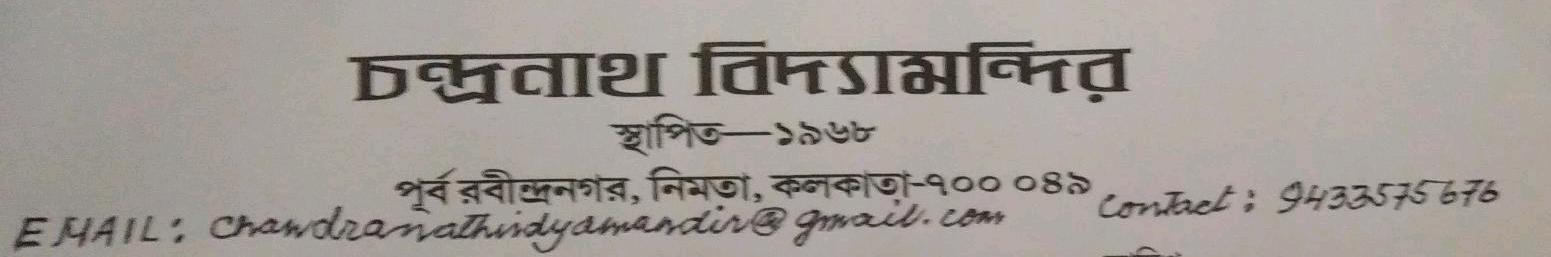 চন্দ্রনাথ বিদ্যামন্দির
স্থাপিত—১৯৬৮
পূর্ব রবীন্দ্রনগর, নিমতা, কলকাতা-৭০০ ০৪৯
EMAIL: chandranathvidyamandir@gmail.com contact: 9433575676